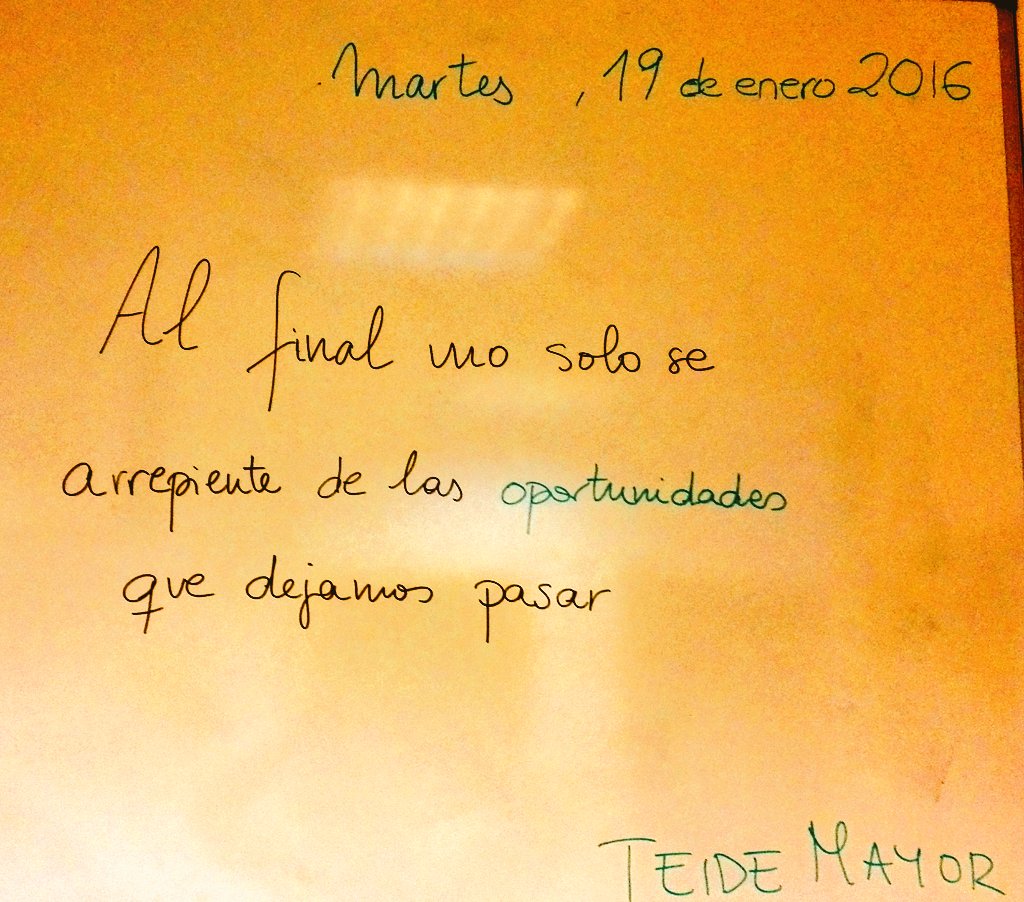 Martes, 19 de enero 2016
Al final uno solo se
arrepiente de las oportunidades
que dejamos pasar
TEIDE MAYOR